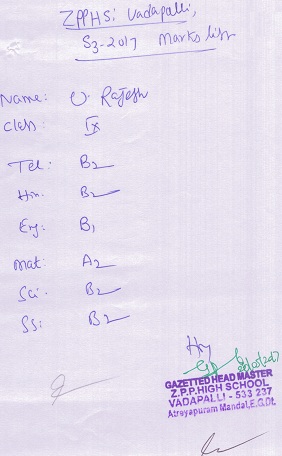 ZPPHS: Vadapalli,
S3-2017 Marks list
Name: U. Rajesh
Class: IX
Tel: B2
Hin: B2
Eng: B1
Mat: A2
Sci: B2
SS: B2
GAZETTED HEAD MASTER
Z.P.P.HIGH SCHOOL
VADAPALLI - 533 237
Atreyapuram Mandal, E.G.Dt.